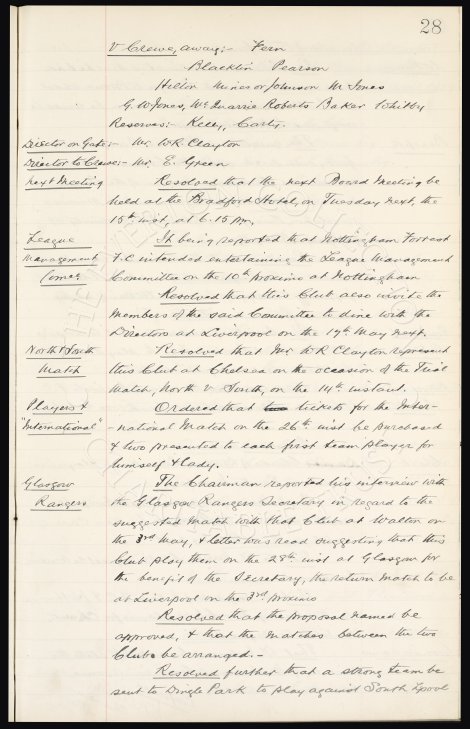 28
V Crewe, away:- Fern
Blacklin Pearson
Hilton Munro or Johnson Mr Jones
G. W Jones, McQuarrie Roberts Baker Whitby
Reserves:- Kelly, Carty.
Director on Gate:- Mr W R Clayton
Director to Crewe:- Mr E. Green
Next Meeting Resolved that the next Board Meeting be
held at the Bradford Hotel, on Tuesday next, the
15th inst, at 6.15 pm.
League It being reported that Nottingham Forrest
Management F.C intended entertaining the League Management
Comee Committee on the 10th proximo at Nottingham
Resolved that this Club also invite the
members of the said Committee to dine with the
Directors at Liverpool on the 17th May next.
North v South Resolved that Mr W R Clayton represent
Match this Club at Chelsea on the occasion of the Trial
Match, North v South, on the 14th instant.
Players & Ordered that two tickets for the Inter-
"International" -national Match on the 26th inst be purchased
& two presented to each first team player for
himself & lady.
Glasgow The Chairman reported his interview with
Rangers the Glasgow Rangers Secretary in regard to the
suggested match with that Club at Walton on
the 3rd May, & letter was read suggesting that this
Club play them on the 28th inst at Glasgow for
the benefit of the Secretary, the return match to be
at Liverpool on the 3rd proximo
Resolved that the proposal named be
approved, & that the matches between the two
Clubs be arranged.-
Resolved further that a strong team be
sent to Dingle Park to play against South Lpool